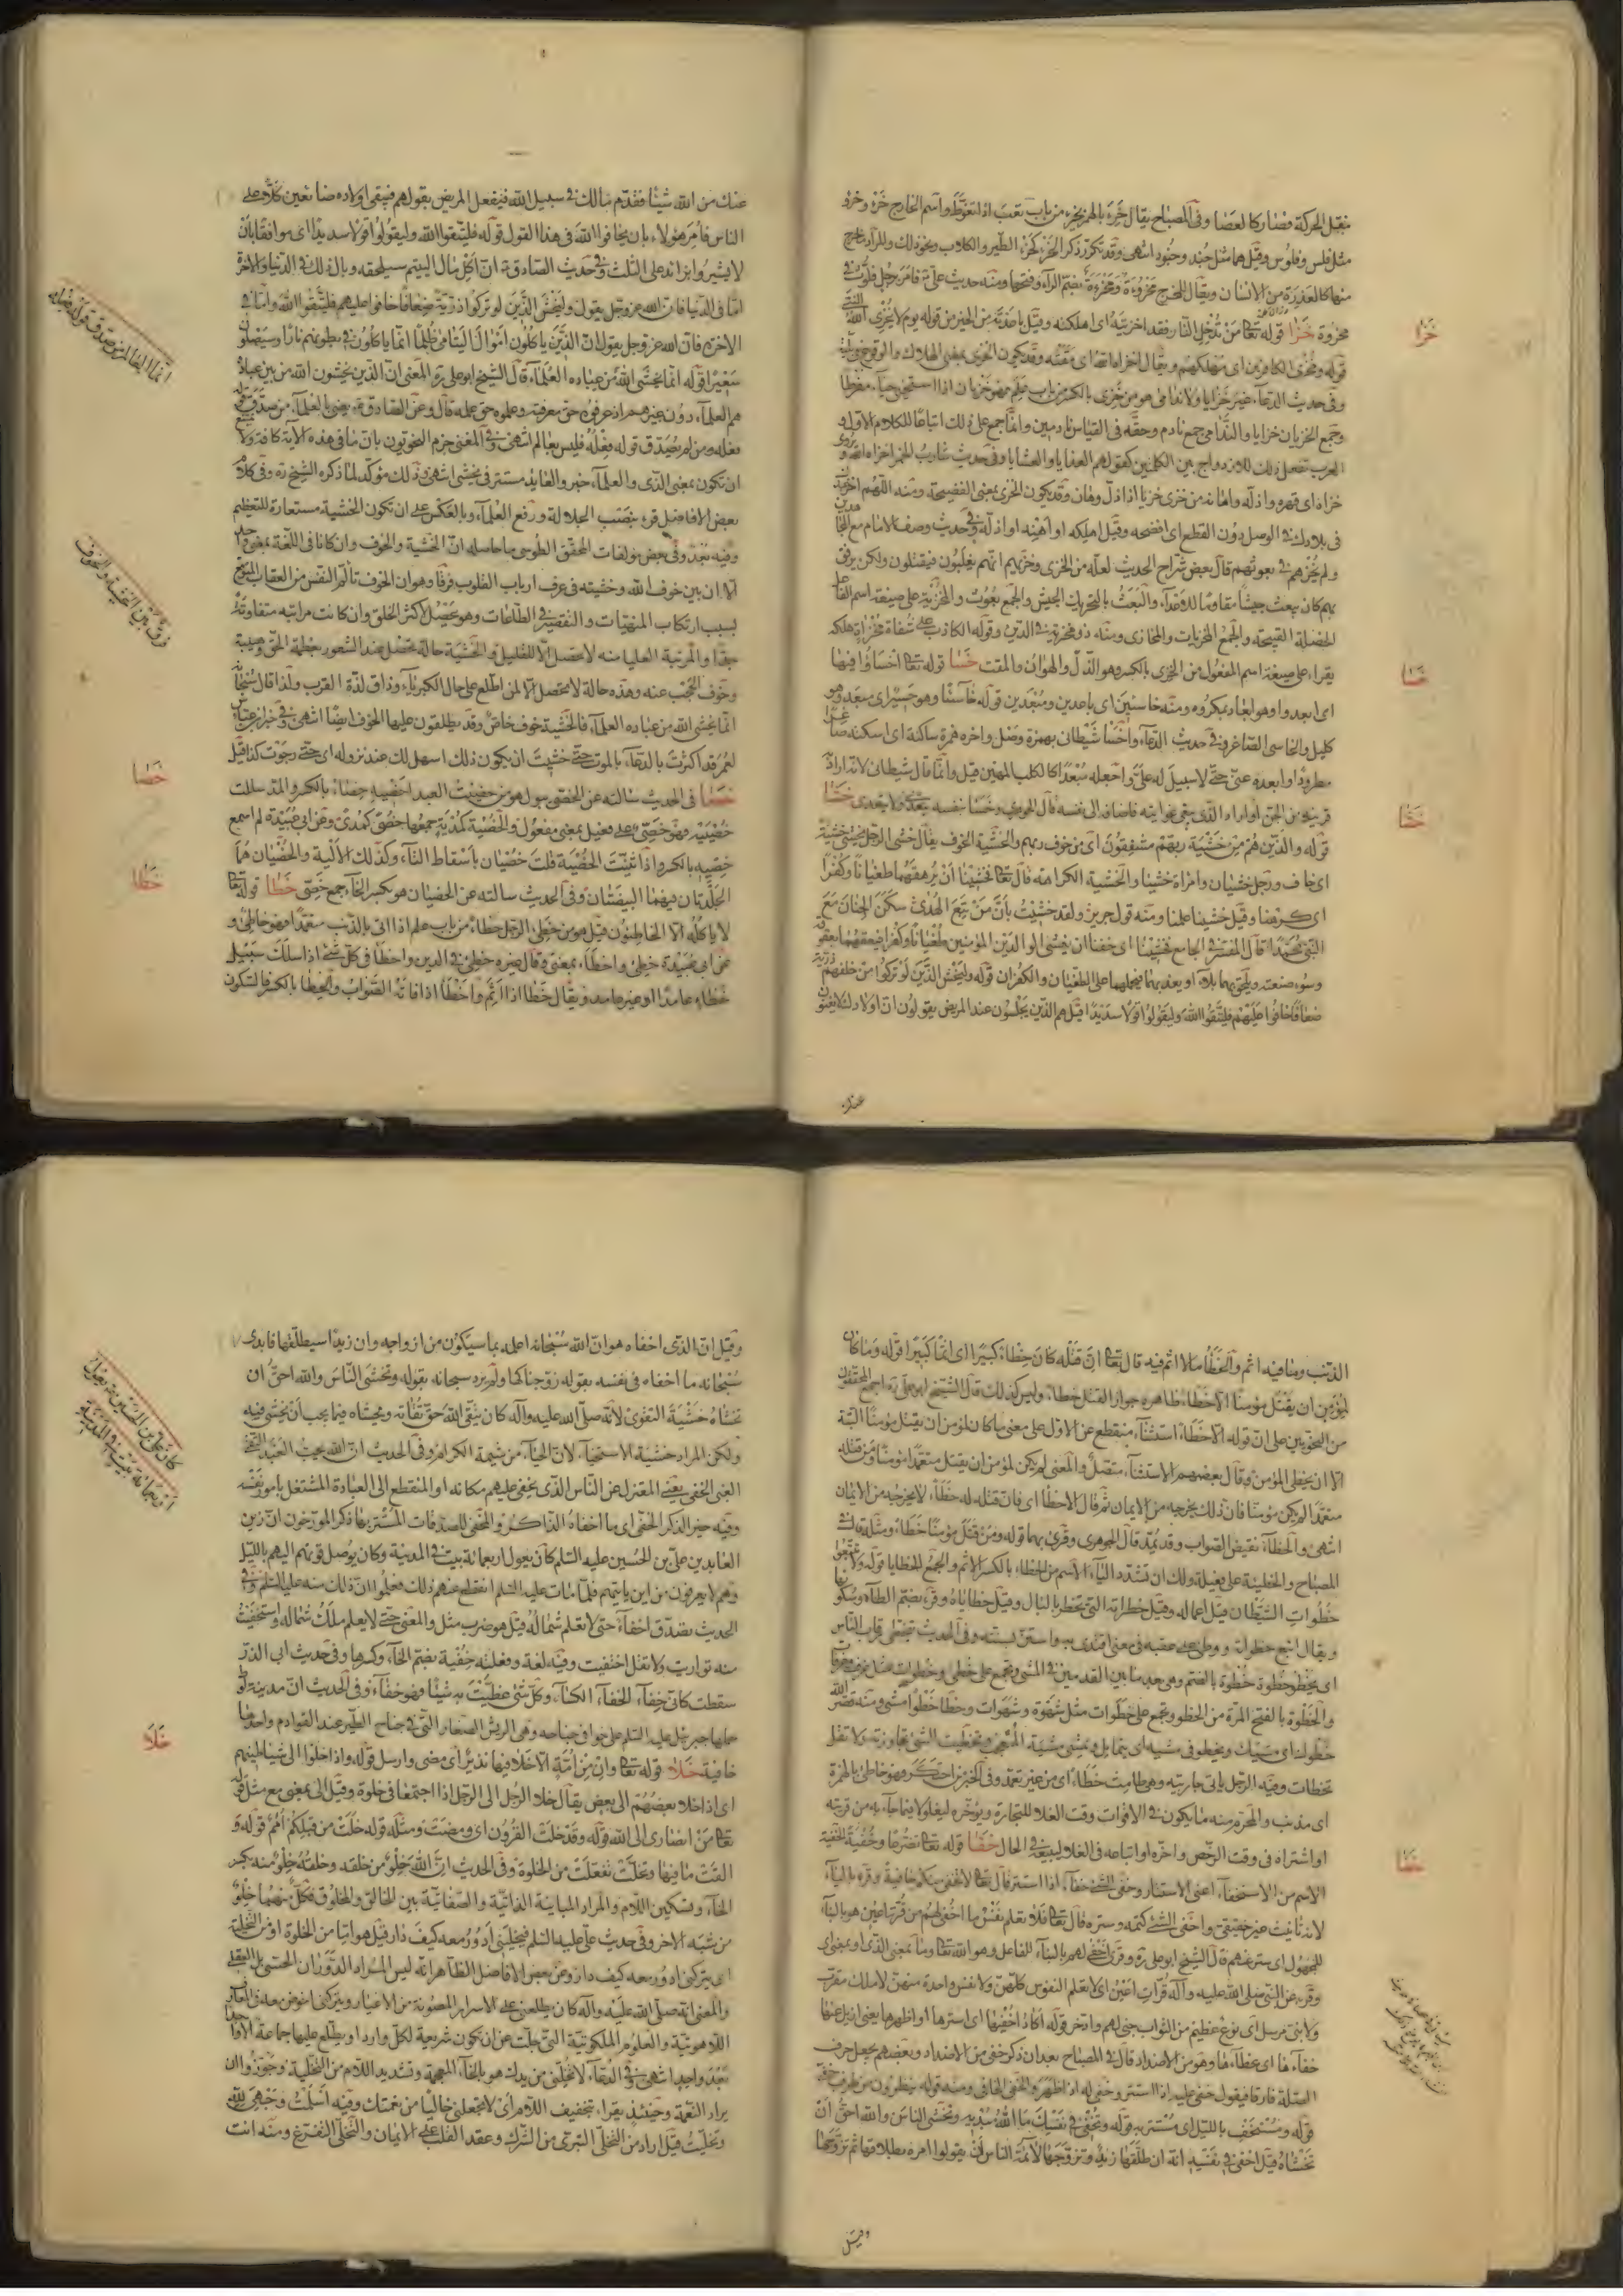 فنقل الحركة فصار كالعصا وفى المصباح يقال خرئ بالهمز يخرء من باب تعب اذا تغوط واسم الخارج خرء وخرؤ
مثل فلس وفلوس وقيل هما مثل جند وجنود انتهى وقد تكرر ذكر الخرء كخرء الطير والكلاب ونحو ذلك والمراد ما خرج
منها كالعذرة من الانسان ويقال للمخرج مخروءة ومخرءة بضم الراء وفتحها ومنه حديث على فامر رجل فلوث فى
مخروة خزا قوله تعا من تدخل النار فقد اخزيته اى اهلكته وقيل باعدته من الخير من قوله يوم لا يخزى الله النبى
قوله ومخزى الكافرين اى مهلكهم ويقال اخزاه الله اى مقته وقد يكون الخزى بمعنى الهلاك والوقوع فى بلية
وفى حديث الدعاء غير خزايا ولا ندامى هو من خزى بالكسر من باب علم فهو خزيان اذا استحيى حياء مفرطا
وجمع الخزيان خزايا والندامى جمع نادم وحقه فى القياس نادمين وانما جمع على ذلك اتباعا للكلام الاول و
العرب تفعل ذلك للازدواج بين الكلمتين كقولهم الغدايا والعشايا وفى حديث شارب الخمر اخزاه الله و
خزاه اى قهره واذله واهانه من خزى خزيا اذا ذل وهان وقد يكون الخزى بمعنى الفضيحة ومنه اللهم اخز عبدك
فى بلادك فى الوصل دون القطع اى افضحه وقيل اهلكه او اهنه او اذله وفى حديث وصف الامام مع المجاهدين
ولم يخزهم فى بعوثهم قال بعض شراح الحديث لعله من الخزى وخزيهم انهم يغلبون فيقتلون ولكن يرفق
بهم كان يبعث جيشا مقاوما للاعداء والبعث بالتحريك الجيش والجمع بعوث والمخزية على صيغة اسم الفاعل
الخصلة القبيحة والجمع المخزيات والمخازى ومثله ذو مخزية فى الدين وقوله الكاذب على شفاة مخزاة وهلكة
يقراء على صيغة اسم المفعول من الخزى بالكسر وهو الذل والهوان والمقت خسا قوله تعا اخساؤا فيها
اى ابعدوا وهو ابعاد بمكروه ومنه خاسئين اى باعدين ومبعدين قوله خاسئا وهو حسير اى مبعد وهو
كليل والخاسئ الصاغر وفى حديث الدعاء واخسأ شيطانى بهمزة وصل واخره همزة ساكنة اى اسكنه صاغرا
مطرودا وابعده عنى حتى لا سبيل له على واجعله مبعدا كالكلب المهين قيل وانما قال شيطانى لانه اراد
قرينه من الجن او اراد الذى يبتغى غوايته فاضافه الى نفسه قال الجوهرى وخسأ بنفسه يتعدى ولا يتعدى خشا
قوله والذين هم من خشية ربهم مشفقون اى من خوف ربهم والخشية الخوف يقال خشى الرجل يخشى خشية
اى خاف ورجل خشيان وامراة خشيا والخشية الكراهة قال تعا فخشينا ان يرهقهما طغيانا وكفرا
اى كرهنا وقيل خشينا علمنا ومنه قول جرير ولقد خشيت بان من تبع الهدى سكن الجنان مع
النبى محمدا قال المفسر فى الجامع فخشينا اى خفنا ان يغشى الوالدين المؤمنين طغيانا وكفرا فيعقهما بعقوقه
وسوء صنعته ويلحق بهما بلاء او يعديهما فيحملهما على الطغيان والكفران قوله وليخش الذين لو تركوا من خلفهم ذرية
ضعافا خافوا عليهم فليتقوا الله وليقولوا قولا سديدا قيل هم الذين يجلسون عند المريض يقولون ان اولادك لا يغنون
خزا
خسا
خشا
عنك
عنك من الله شيئا فقدم مالك فى سبيل الله فيفعل المريض بقولهم فيبقى اولاده ضايعين كلا على
الناس فامر هؤلاء بان يخافوا الله فى هذا القول قوله فليتقوا الله وليقولوا قولا سديدا اى موافقا بان
لا يشيروا بزايد على الثلث وفى حديث الصادق ان اكل مال اليتيم سيلحقه وبال ذلك فى الدنيا والاخرة
اما فى الدنيا فان الله عز وجل يقول وليخش الذين لو تركوا ذرية ضعافا خافوا عليهم فليتقوا الله واما فى
الاخرة فان الله عز وجل يقول ان الذين ياكلون اموال اليتامى ظلما انما ياكلون فى بطونهم نارا وسيصلون
سعيرا قوله انما يخشى الله من عباده العلماء قال الشيخ ابو على ره المعنى ان الذين يخشون الله من بين عباده
هم العلماء دون غيرهم اذ عرفوه حق معرفته وعلموه حق علمه قال وعن الصادق يعنى بالعلماء من صدق قوله
فعله ومن لم يصدق قوله فعله فليس بعالم انتهى وفى المغنى جزم النحويون بان ما فى هذه الاية كافة ولا
ان تكون بمعنى الذى والعلماء خبر والعايد مستتر فى يخشى انتهى وذلك مؤكد لما ذكره الشيخ ره وفى كلام
بعض الافاضل قرء بنصب الجلالة ورفع العلماء وبالعكس على ان تكون الخشية مستعارة للتعظيم
وفيه بعد وفى بعض مؤلفات المحقق الطوسى ما حاصله ان الخشية والخوف وان كانا فى اللغة بمعنى واحد
الا ان بين خوف الله وخشيته فى عرف ارباب القلوب فرقا وهو ان الخوف تألم النفس من العقاب المتوقع
بسبب ارتكاب المنهيات والتقصير فى الطاعات وهو يحصل لاكثر الخلق وان كانت مراتبه متفاوتة
جدا والمرتبة العليا منه لا تحصل الا للقليل والخشية حالة تحصل عند الشعور بعظمة الحق وهيبته
وخوف الحجب عنه وهذه حالة لا تحصل الا لمن اطلع على حال الكبرياء وذاق لذة القرب ولذا قال سبحانه
انما يخشى الله من عباده العلماء فالخشية خوف خاص وقد يطلقون عليها الخوف ايضا انتهى وفى خبر ابن عباس
لعمر قد اكثرت بالدعاء بالموت حتى خشيت ان يكون ذلك اسهل لك عند نزوله اى حتى رجوت كذا قيل
خصا فى الحديث سالته عن الخصى يبول هو من خصيت العبد اخصيه خصاء بالكسر والمد سللت
خصييه فهو خصى على فعيل بمعنى مفعول والخصية كمدية جمعها خصى كمدى وعن ابى عبيدة لم اسمع
خصيه بالكسر واذا ثنيت الخصية قلت خصيان باسقاط التاء وكذلك الالية والخصيان هما
الجلدتان فيهما البيضتان وفى الحديث سالته عن الخصيان هو بكسر الخاء جمع خصى خطا قوله تعا
لا ياكله الا الخاطئون قيل هو من خطى الرجل خطاء من باب علم اذا اتى بالذنب متعمدا فهو خاطئ و
عن ابى عبيدة خطئ واخطاء بمعنى وقال غيره خطئ فى الدين واخطأ فى كل شئ اذا سلك سبيل
خطاء عامدا او غير عامد ويقال خطأ اذا اثم واخطأ اذا فاته الصواب والخطا بالكسر فالسكون
انما العالم من صدق قوله فعله
فرق بين الخشية والخوف
خصا
خطا
الذنب وما فيه اثم والخطأ ما لا اثم فيه قال تعا ان قتله كان خطاء كبيرا اى اثما كبيرا قوله وما كان
لمؤمن ان يقتل مؤمنا الا خطاء ظاهره جواز القتل خطاء وليس كذلك قال الشيخ ابو على ره اجمع المحققون
من النحويين على ان قوله الا خطاء استثناء منقطع عن الاول على معنى ما كان لمؤمن ان يقتل مؤمنا البتة
الا ان يخطئ المؤمن وقال بعضهم الاستثناء متصل والمعنى لم يكن لمؤمن ان يقتل متعمدا مؤمنا ومن قتله
متعمدا لم يكن مؤمنا فان ذلك يخرجه من الايمان ثم قال الا خطأ اى فان قتله له خطاء لا يخرجه من الايمان
انتهى والخطاء نقيض الصواب وقد يمد قال الجوهرى وقرئ بهما قوله ومن قتل مؤمنا خطاء ومثله قال فى
المصباح والخطيئة على فعيلة ولك ان تشدد الياء الاسم من الخطاء بالكسر الاثم والجمع الخطايا قوله ولا تتبعوا
خطوات الشيطان قيل اعماله وقيل خطراته التى تخطر بالبال وقيل خطاياه وقرء بضم الطاء وسكونها
ويقال اتبع خطواته ووطئ على عقبه فى معنى اقتدى به واستن بسنته وفى الحديث تتخطى رقاب الناس
اى يخطو خطوة خطوة بالضم وهى بعد ما بين القدمين فى المشى وتجمع على خطى وخطوات مثل غرف وغرفات
والخطوة بالفتح المرة من الخطو وتجمع على خطوات مثل شهوة وشهوات وخطا خطوا مشى ومنه قصر الله
خطوك اى مشيك ويخطو فى مشيه اى يتمايل ويمشى مشية المعجب وتخطيت الشئ تجاوزته ولا تقل
تخطات وفيه الرجل ياتى جاريته وهى طامث خطاء اى من غير تعمد وفى الخبر من احتكر فهو خاطئ بالهمزة
اى مذنب والمحرم منه ما يكون فى الاقوات وقت الغلا للتجارة ويؤخره ليغلو لا فيما جاء به من قريته
او اشتراه فى وقت الرخص واخره او ابتاعه فى الغلا ليبيعه فى الحال خفا قوله تعا تضرعا وخفية الخفية
الاسم من الاستخفاء اعنى الاستتار وخفى الشئ خفاء اذا استتر قال تعا لا تخفى منكم خافية وقرء بالياء
لان تانيث غير حقيقى واخفى الشئ كتمه وستره قال تعا فلا تعلم نفس ما اخفى لهم من قرة اعين هو بالبناء
للمجهول اى ستر عنهم قال الشيخ ابو على ره وقرئ اخفى لهم بالبناء للفاعل وهو الله تعا وما بمعنى الذى او بمعنى اى
وقرء عن النبى صلى الله عليه وآله قرات اعين اى لا تعلم النفوس كلهن ولا نفس واحدة منهن لا ملك مقرب
ولا نبى مرسل اى نوع عظيم من الثواب خبئ لهم وادخر قوله اكاد اخفيها اى استرها او اظهرها يعنى ازيل عنها
خفاءها اى غطاءها وهو من الاضداد قال فى المصباح بعد ان ذكر خفى من الاضداد وبعضهم يجعل حرف
الصلة فارقا فيقول خفى عليه اذا استتر وخفى له اذا ظهر والخفى الخافى ومنه قوله ينظرون من طرف خفى
قوله ومستخف بالليل اى مستتر به قوله وتخفى فى نفسك ما الله مبديه وتخشى الناس والله احق ان
تخشاه قيل اخفى فى نفسه انه ان طلقها زيد وتزوجها لامه الناس ان يقولوا امره بطلاقها ثم تزوجها
خفا
وقيل
وقيل ان الذى اخفاه هو ان الله سبحانه اعلمه بما سيكون من ازواجه وان زيدا سيطلقها فابدى
سبحانه ما اخفاه فى نفسه بقوله زوجناكها ولم يرد سبحانه بقوله وتخشى الناس والله احق ان
تخشاه خشية التقوى لانه صلى الله عليه وآله كان يتقى الله حق تقاته ويخشاه فيما يجب ان يخشى فيه
ولكن المراد خشية الاستحياء لان الحياء من شيمة الكرام وفى الحديث ان الله يحب العبد التقى
الغنى الخفى يعنى المعتزل عن الناس الذى يخفى عليهم مكانه او المنقطع الى العبادة المشتغل بامور نفسه
وفيه خير الذكر الخفى اى ما اخفاه الذاكر والمخفى للصدقات المستتر بها ذكر المورخون ان زين
العابدين على بن الحسين عليه السلم كان يعول اربعمائة بيت فى المدينة وكان يوصل قوتهم اليهم بالليل
وهم لا يعرفون من اين ياتيهم فلما مات عليه السلم انقطع عنهم ذلك فعلموا ان ذلك منه عليه السلم وفى
الحديث تصدق اخفاء حتى لا تعلم شماله قيل هو ضرب مثل والمعنى حتى لا يعلم ملك شماله واستخفيت
منه تواريت ولا تقل اختفيت وفيه لغة وفعلته خفية بضم الخاء وكسرها وفى حديث ابى الذر
سقطت كانى خفاء الخفاء الكساء وكل شئ غطيت به شيئا فهو خفاء وفى الحديث ان مدينة لوط
حملها جبرئيل عليه السلم على خوافى جناحه وهى الريش الصغار التى فى جناح الطير عند القوادم واحدتها
خافية خلا قوله تعا وان من امة الا خلا فيها نذير اى مضى وارسل قوله واذا خلوا الى شياطينهم
اى اذا خلا بعضهم الى بعض يقال خلا الرجل الى الرجل اذا اجتمعا فى خلوة وقيل الى بمعنى مع مثل قوله
تعا من انصارى الى الله قوله وقد خلت القرون اى ومضت ومثله قوله خلت من قبلكم امم قوله و
القت ما فيها وتخلت تفعلت من الخلوة وفى الحديث ان الله خلو من خلقه وخلقه خلو منه بكسر
الخاء وتسكين اللام والمراد المباينة الذاتية والصفاتية بين الخالق والمخلوق فكل منهما خلو
من شبه الاخر وفى حديث على عليه السلم فيخلينى ادور معه كيف دار قيل هو اما من الخلوة او من التخلية
اى يتركنى ادور معه كيف دار وعن بعض الافاضل الظاهر انه ليس المراد الدوران الحسى بل العقلى
والمعنى انه صلى الله عليه وآله كان يطلعنى على الاسرار المصونة عن الاغيار ويتركنى اخوض معه فى المعارف
اللاهوتية والعلوم الملكوتية التى جلت عن ان تكون شريعة لكل وارد او يطلع عليها جماعة الا واحد
بعد واحد انتهى وفى الدعاء لا تخلنى من يدك هو بالخاء المعجمة وتشديد اللام من التخلية وجوزوا ان
يراد النعمة وحينئذ يقراء بتخفيف اللام اى لا تجعلنى خاليا من نعمتك وفيه اسلمت وجهى لله
وتخليت قيل اراد من التخلى التبرى من الشرك وعقد القلب على الايمان والتخلى التفرغ ومنه انت
كان على بن الحسين يعول
اربعمائة بيت فى المدينة
خلا